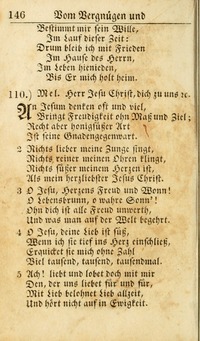 146 Vom Vergnügen und
Bestimmt mir sein Wille,
Im Lauf dieser Zeit:
Drum bleib ich mit Frieden
Im Hause des Herrn,
Im Leben hienieden,
Bis Er mich holt heim.
110.) Mel. Herr Jesu Christ, dich zu uns ꝛc.
An Jesum denken oft und viel,
Bringt Freudigkeit ohn Maß und Ziel;
Recht aber honigsüßer Art
Ist seine Gnadengegenwart.
2 Nichts lieber meine Zunge singt,
Nichts reiner meinen Ohren klingt,
Nichts süßer meinem Herzen ist,
Als mein herzliebster Jesus Christ.
3 O Jesu, Herzens Freud und Wonn!
O Lebensbrunn, o wahre Sonn'!
Ohn dich ist alle Freud unwerth,
Und was man auf der Welt begehrt.
4 O Jesu, deine Lieb ist süß,
Wenn ich sie tief ins Herz einschließ,
Erquickt sie mich ohne Zahl
Viel tausend, tausend, tausendmal.
5 Ach! liebt und lobet doch mit mir
Den, der uns liebet für und für,
Mit Lieb belohnet Lieb allzeit,
Und hört nicht auf in Ewigkeit.